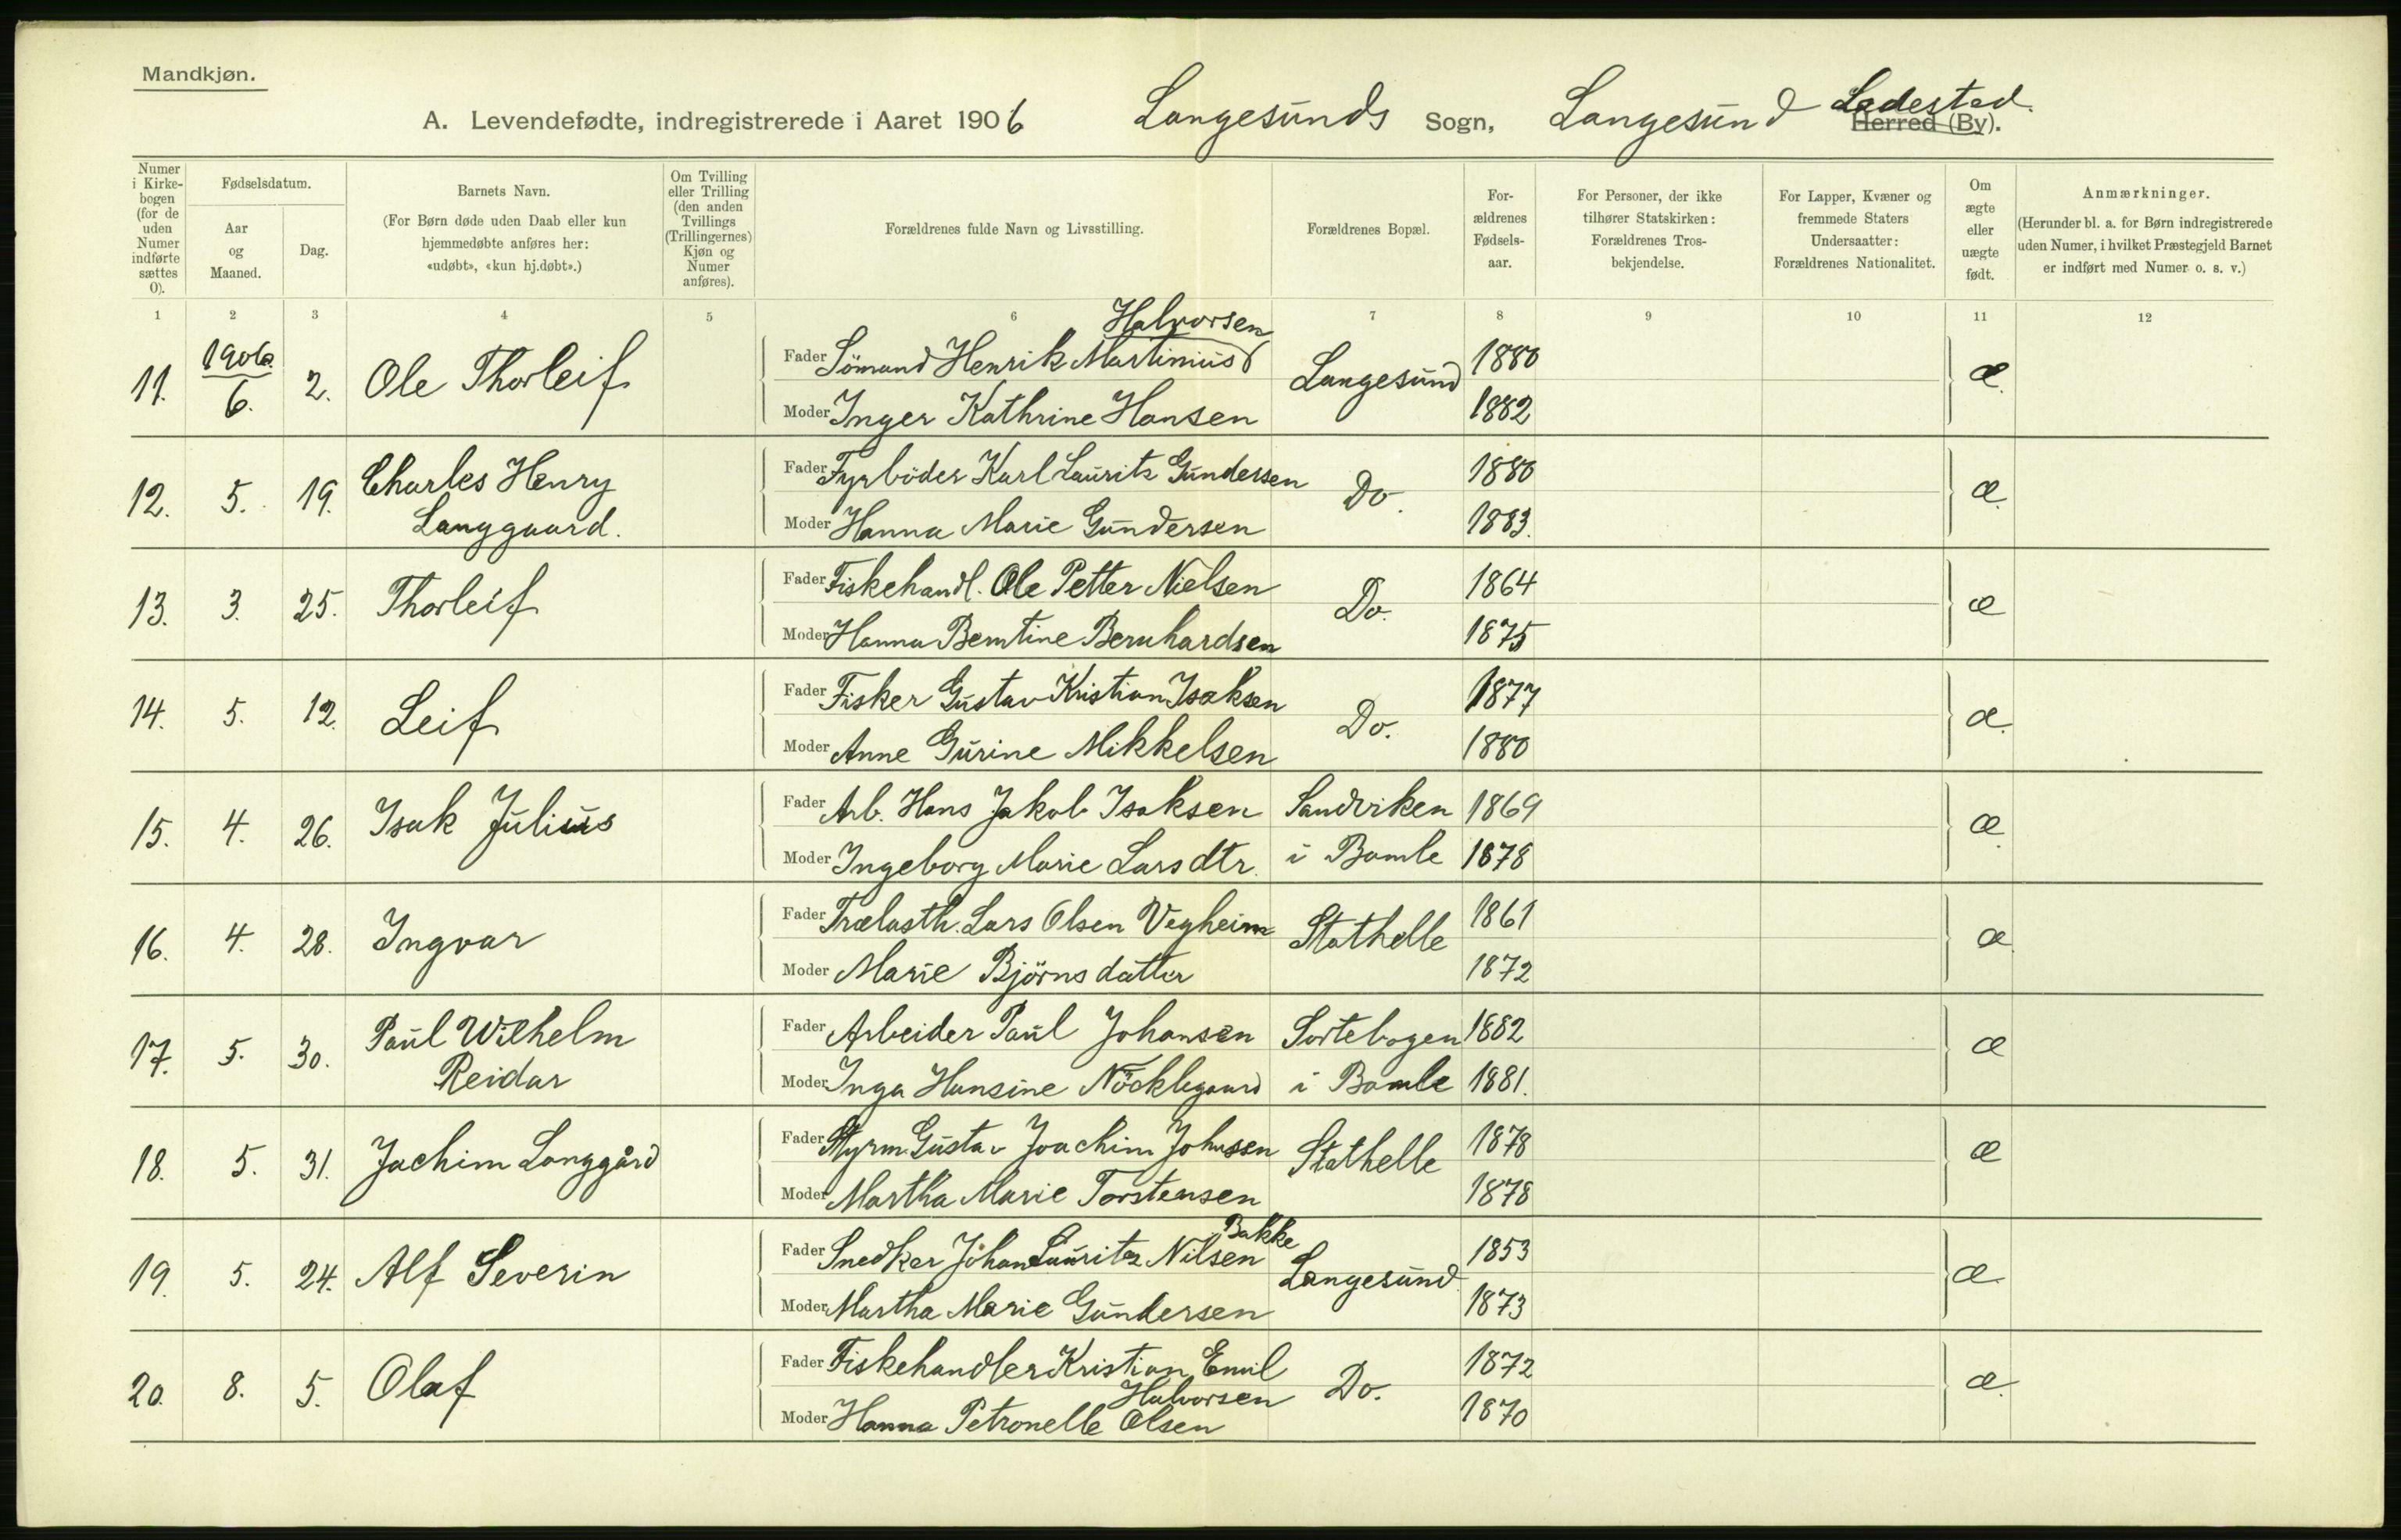 Mandkjøn.
A. Levendefødte, indregistrerede i Aaret 1906 Langesunds Sogn, Langesund Ladested. Herred (By).
Numer i Kirkebogen (for de uden Numer indførte sættes 0).
Fødselsdatum.
Aar og Maaned.
Dag.
Barnets Navn.
(For Børn døde uden Daab eller kun hjemmedøbte anføres her: «udøbt», «kun hj.døbt».)
Om Tvilling eller Trilling (den anden Tvillings (Trillingernes) Kjøn og Numer anføres).
Forældrenes fulde Navn og Livsstilling.
Forældrenes Bopæl.
Forældrenes Fødselsaar.
For Personer, der ikke tilhører Statskirken: Forældrenes Trosbekjendelse.
For Lapper, Kvæner og fremmede Staters Undersaatter: Forældrenes Nationalitet.
Om ægte eller uægte født.
Anmærkninger.
(Herunder bl. a. for Børn indregistrerede uden Numer, i hvilket Præstegjeld Barnet er indført med Numer o. s. v.)
1 2 3 4 5 6 7 8 9 10 11 12
11. 1906. 6. 2. Ole Thorleif
Fader Sömand Henrik Martinius Halvorsen Langesund 1880 æ.
Moder Inger Kathrine Hansen 1882
12. 5. 19. Charles Henry Langgaard.
Fader Fyrböder Karl Laurits Gundersen Do. 1880 æ.
Moder Hanna Marie Gundersen 1883.
13. 3. 25. Thorleif
Fader Fiskehandl. Ole Petter Nielsen Do. 1864 æ
Moder Hanna Berntine Bernhardsen 1875
14. 5. 12. Leif
Fader Fisker Gustav Kristian Isaksen Do. 1877 æ.
Moder Anne Gurine Mikkelsen 1880
15. 4. 26. Isak Julius
Fader Arb. Hans Jakob Isaksen Sandviken 1869 æ.
Moder Ingeborg Marie Larsdtr. i Bamle 1878
16. 4. 28. Ingvar
Fader Trælasth. Lars Olsen Vegheim Stathelle 1861 æ
Moder Marie Björnsdatter 1872
17. 5. 30. Paul Wilhelm Reidar
Fader Arbeider Paul Johansen Sortebogen 1882 æ
Moder Inga Hansine Nöcklegaard i Bamle 1881.
18. 5. 31. Jachim Langgård
Fader Styrm. Gustav Joachim Johnsen Stathelle 1878 æ
Moder Martha Marie Torstensen 1878
19. 5. 24. Alf Severin
Fader Snedker Johan Laurits Nilsen Bakke Langesund 1853 æ.
Moder Martha Marie Gundersen 1873
20. 8. 5. Olaf
Fader Fiskehandler Kristian Emil Halvorsen Do. 1872 æ.
Moder Hanna Petronelle Olsen 1870